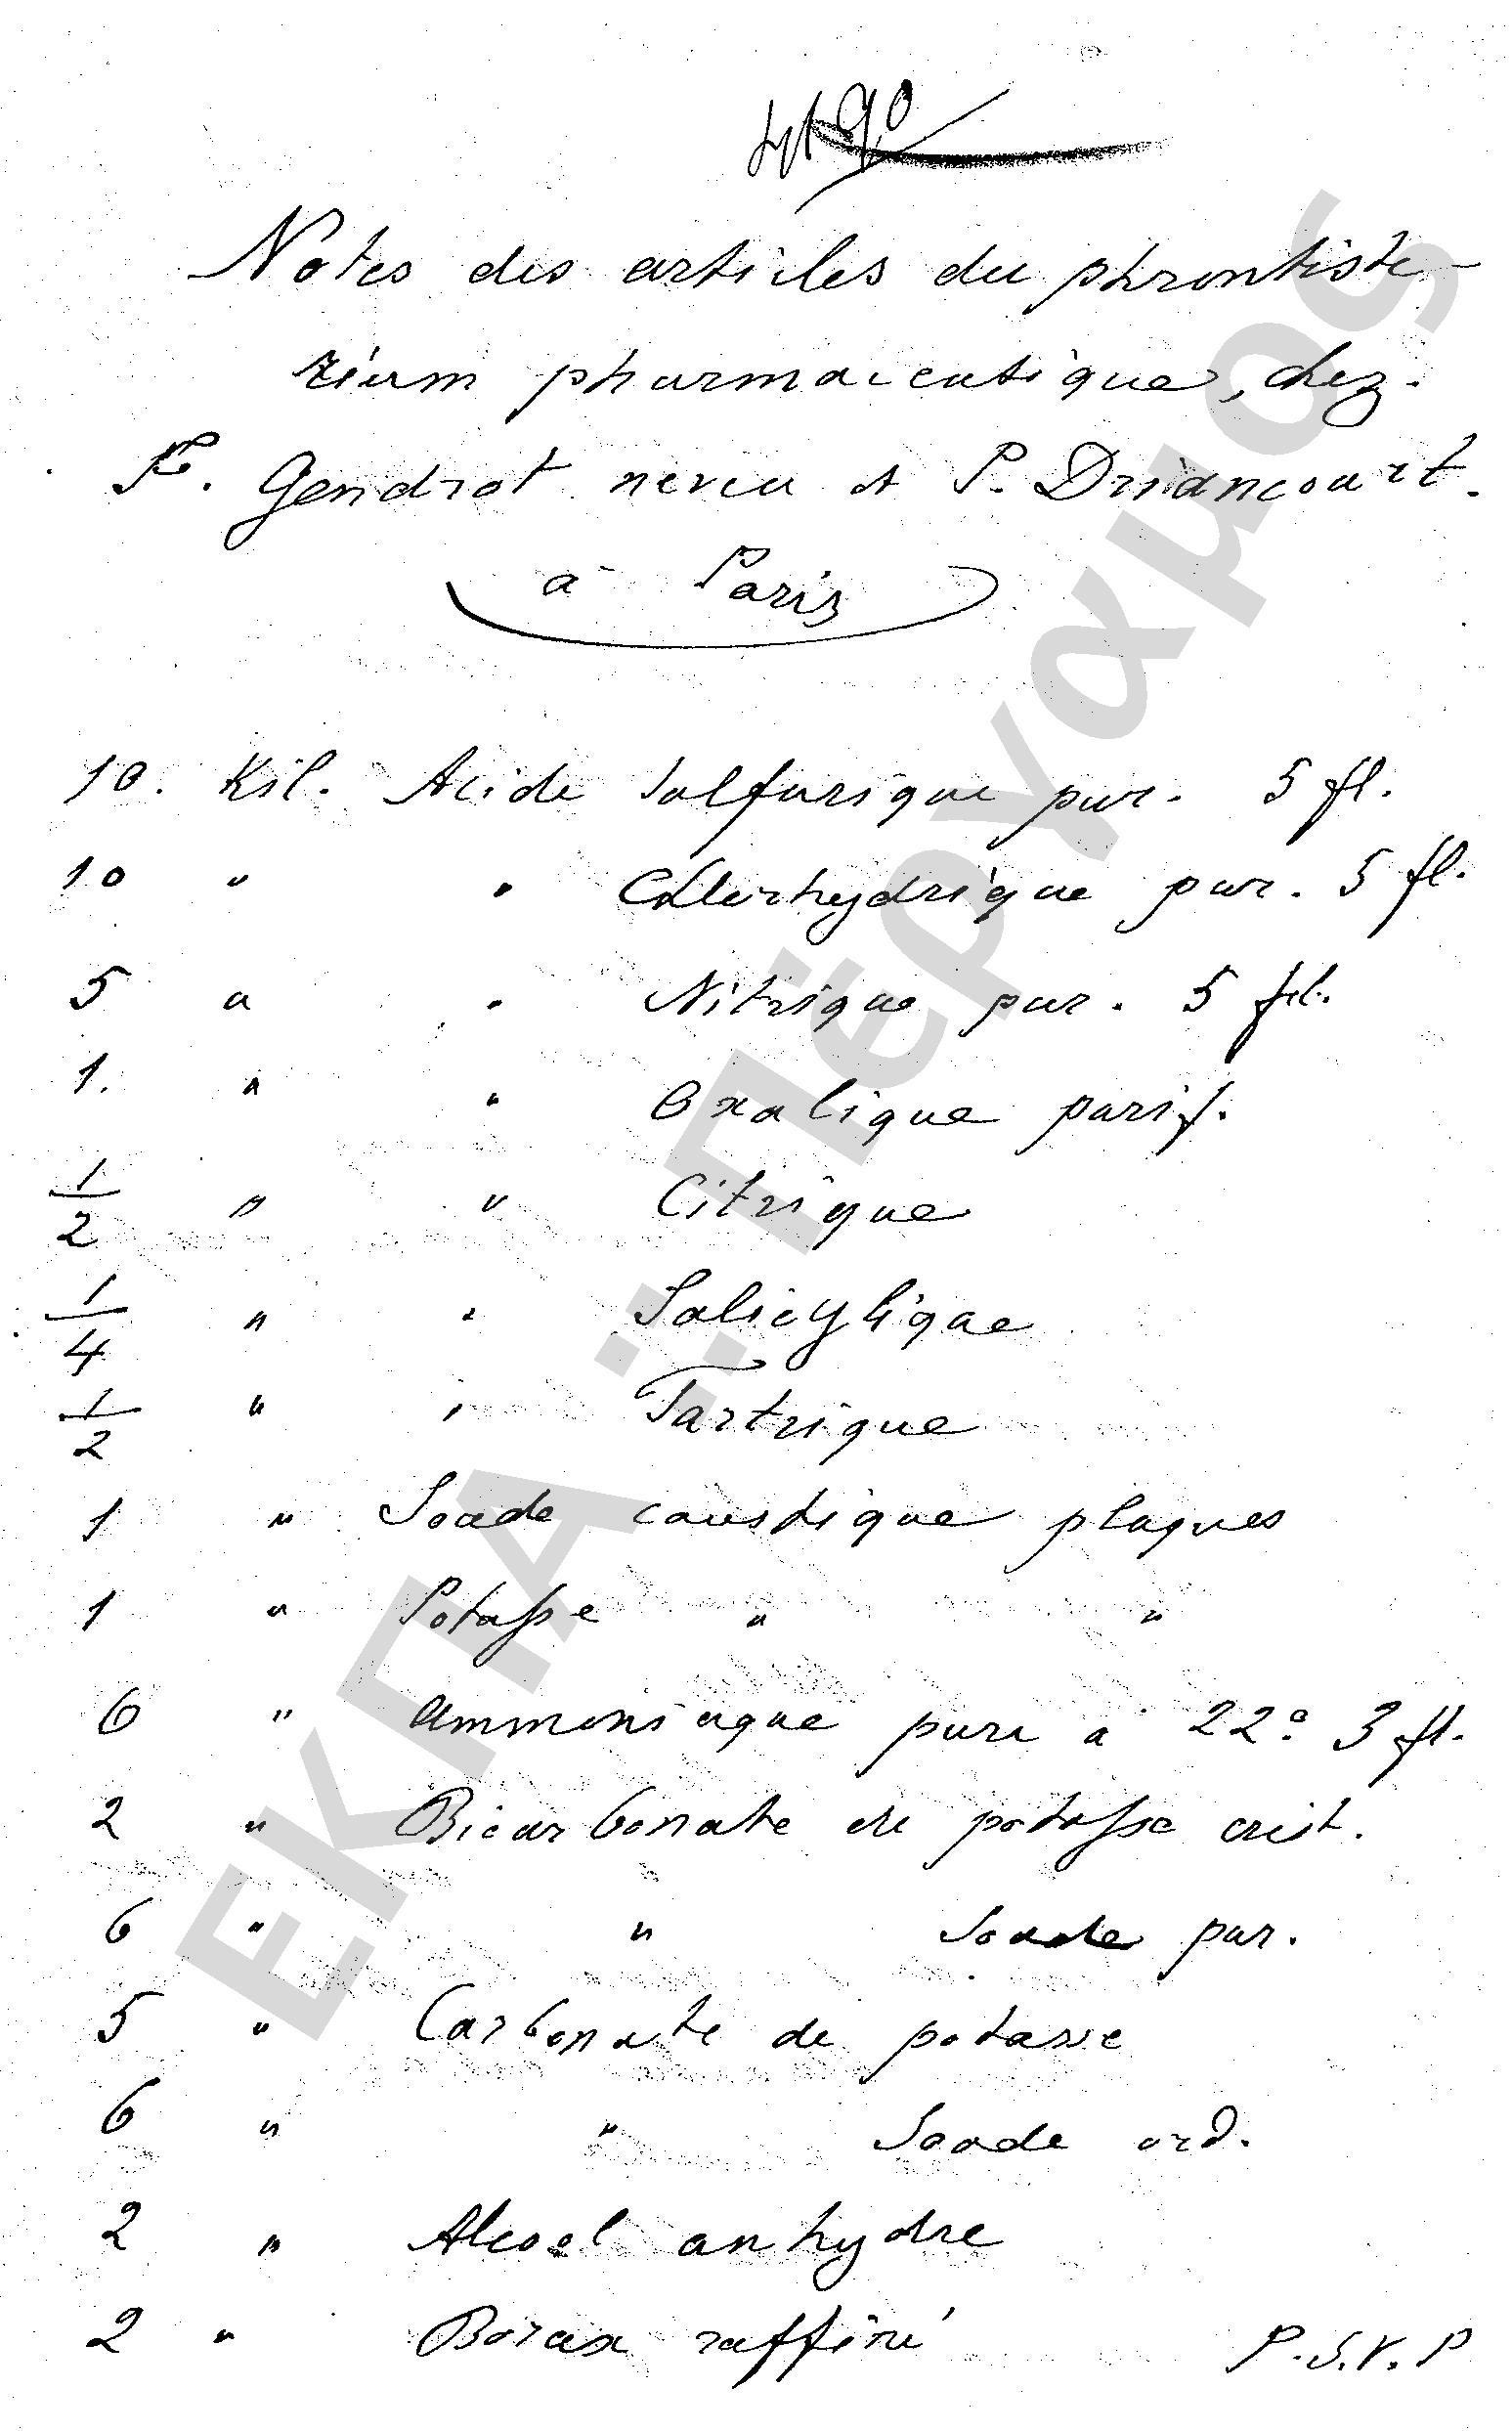 Notes des articles du phrontiste-
rium pharmaceutique, chez.
F. Gendrot neveu et P. Driancourt.
à Paris
10. Kil. Acide Sulfurique pur. 5 fl.
10 " " Chlorhydrique pur. 5 fl.
5 " " Nitrique pur. 5 fl.
1. " " Oxalique purif.
1/2 " " Citrique
1/4 " " Salicylique
1/2 " " Tartrique
1 " Soude caustique plaques
1 " Potasse " "
6 " Ammoniaque pure a 22° 3 fl.
2 " Bicarbonate de potasse crist.
6 " " Soude pur.
5 " Carbonate de potasse
6 " " Soude ord.
2 " Alcool anhydre
2 " Borax raffiné
P.S.V.P
ΕΚΠΑ .. Πέργαμος